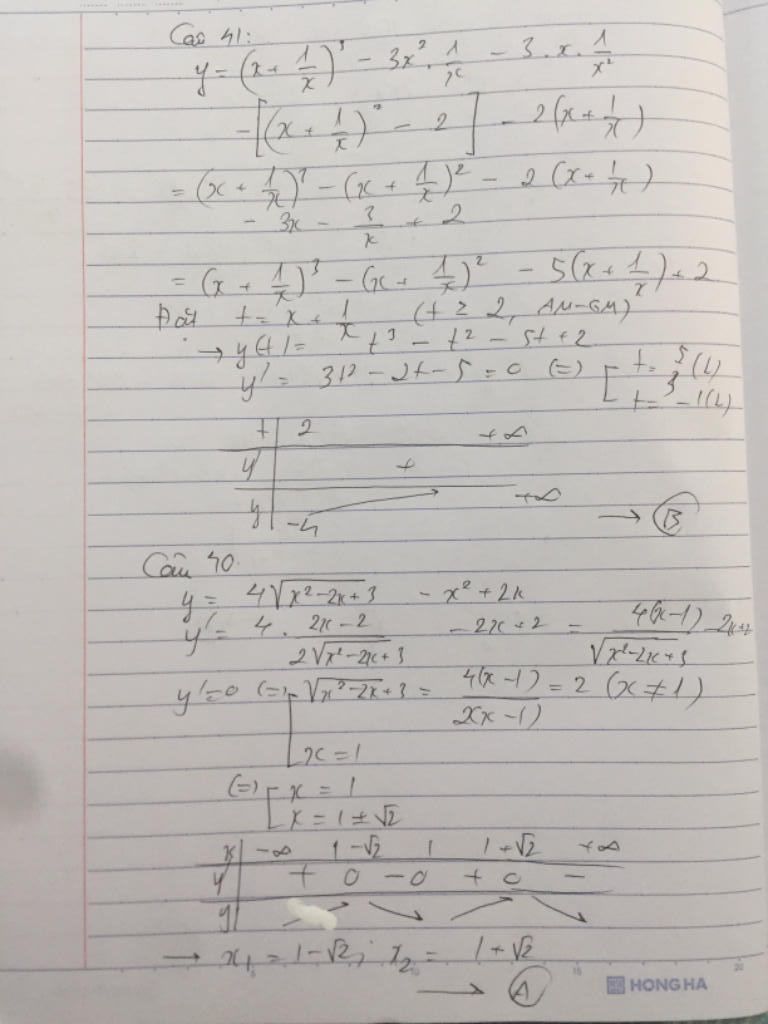 Câu 41:
y = (x + 1/x)³ - 3x² . 1/x - 3 . x . 1/x²
- [(x + 1/x)² - 2] - 2(x + 1/x)
= (x + 1/x)³ - (x + 1/x)² - 2(x + 1/x)
- 3x - 3/x + 2
= (x + 1/x)³ - (x + 1/x)² - 5(x + 1/x) + 2
Đặt t = x + 1/x (t ≥ 2, AM-GM)
→ y(t) = t³ - t² - 5t + 2
y' = 3t² - 2t - 5 = 0 (=) [ t = 5/3 (L)
t = -1 (L)
t | 2 +∞
y' | +
y | -4 +∞
→ B
Câu 40.
y = 4√(x² - 2x + 3) - x² + 2x
y' = 4 . (2x - 2)/(2√(x² - 2x + 3)) - 2x + 2 = 4(x - 1)/√(x² - 2x + 3) - 2x + 2
y' = 0 (=) [ √(x² - 2x + 3) = 4(x - 1)/2(x - 1) = 2 (x ≠ 1)
x = 1
(=) [ x = 1
x = 1 ± √2
x | -∞ 1 - √2 1 1 + √2 +∞
y' | + 0 - 0 + 0 -
y |
→ x₁ = 1 - √2; x₂ = 1 + √2
→ A
5 10 15 20
HONG HA